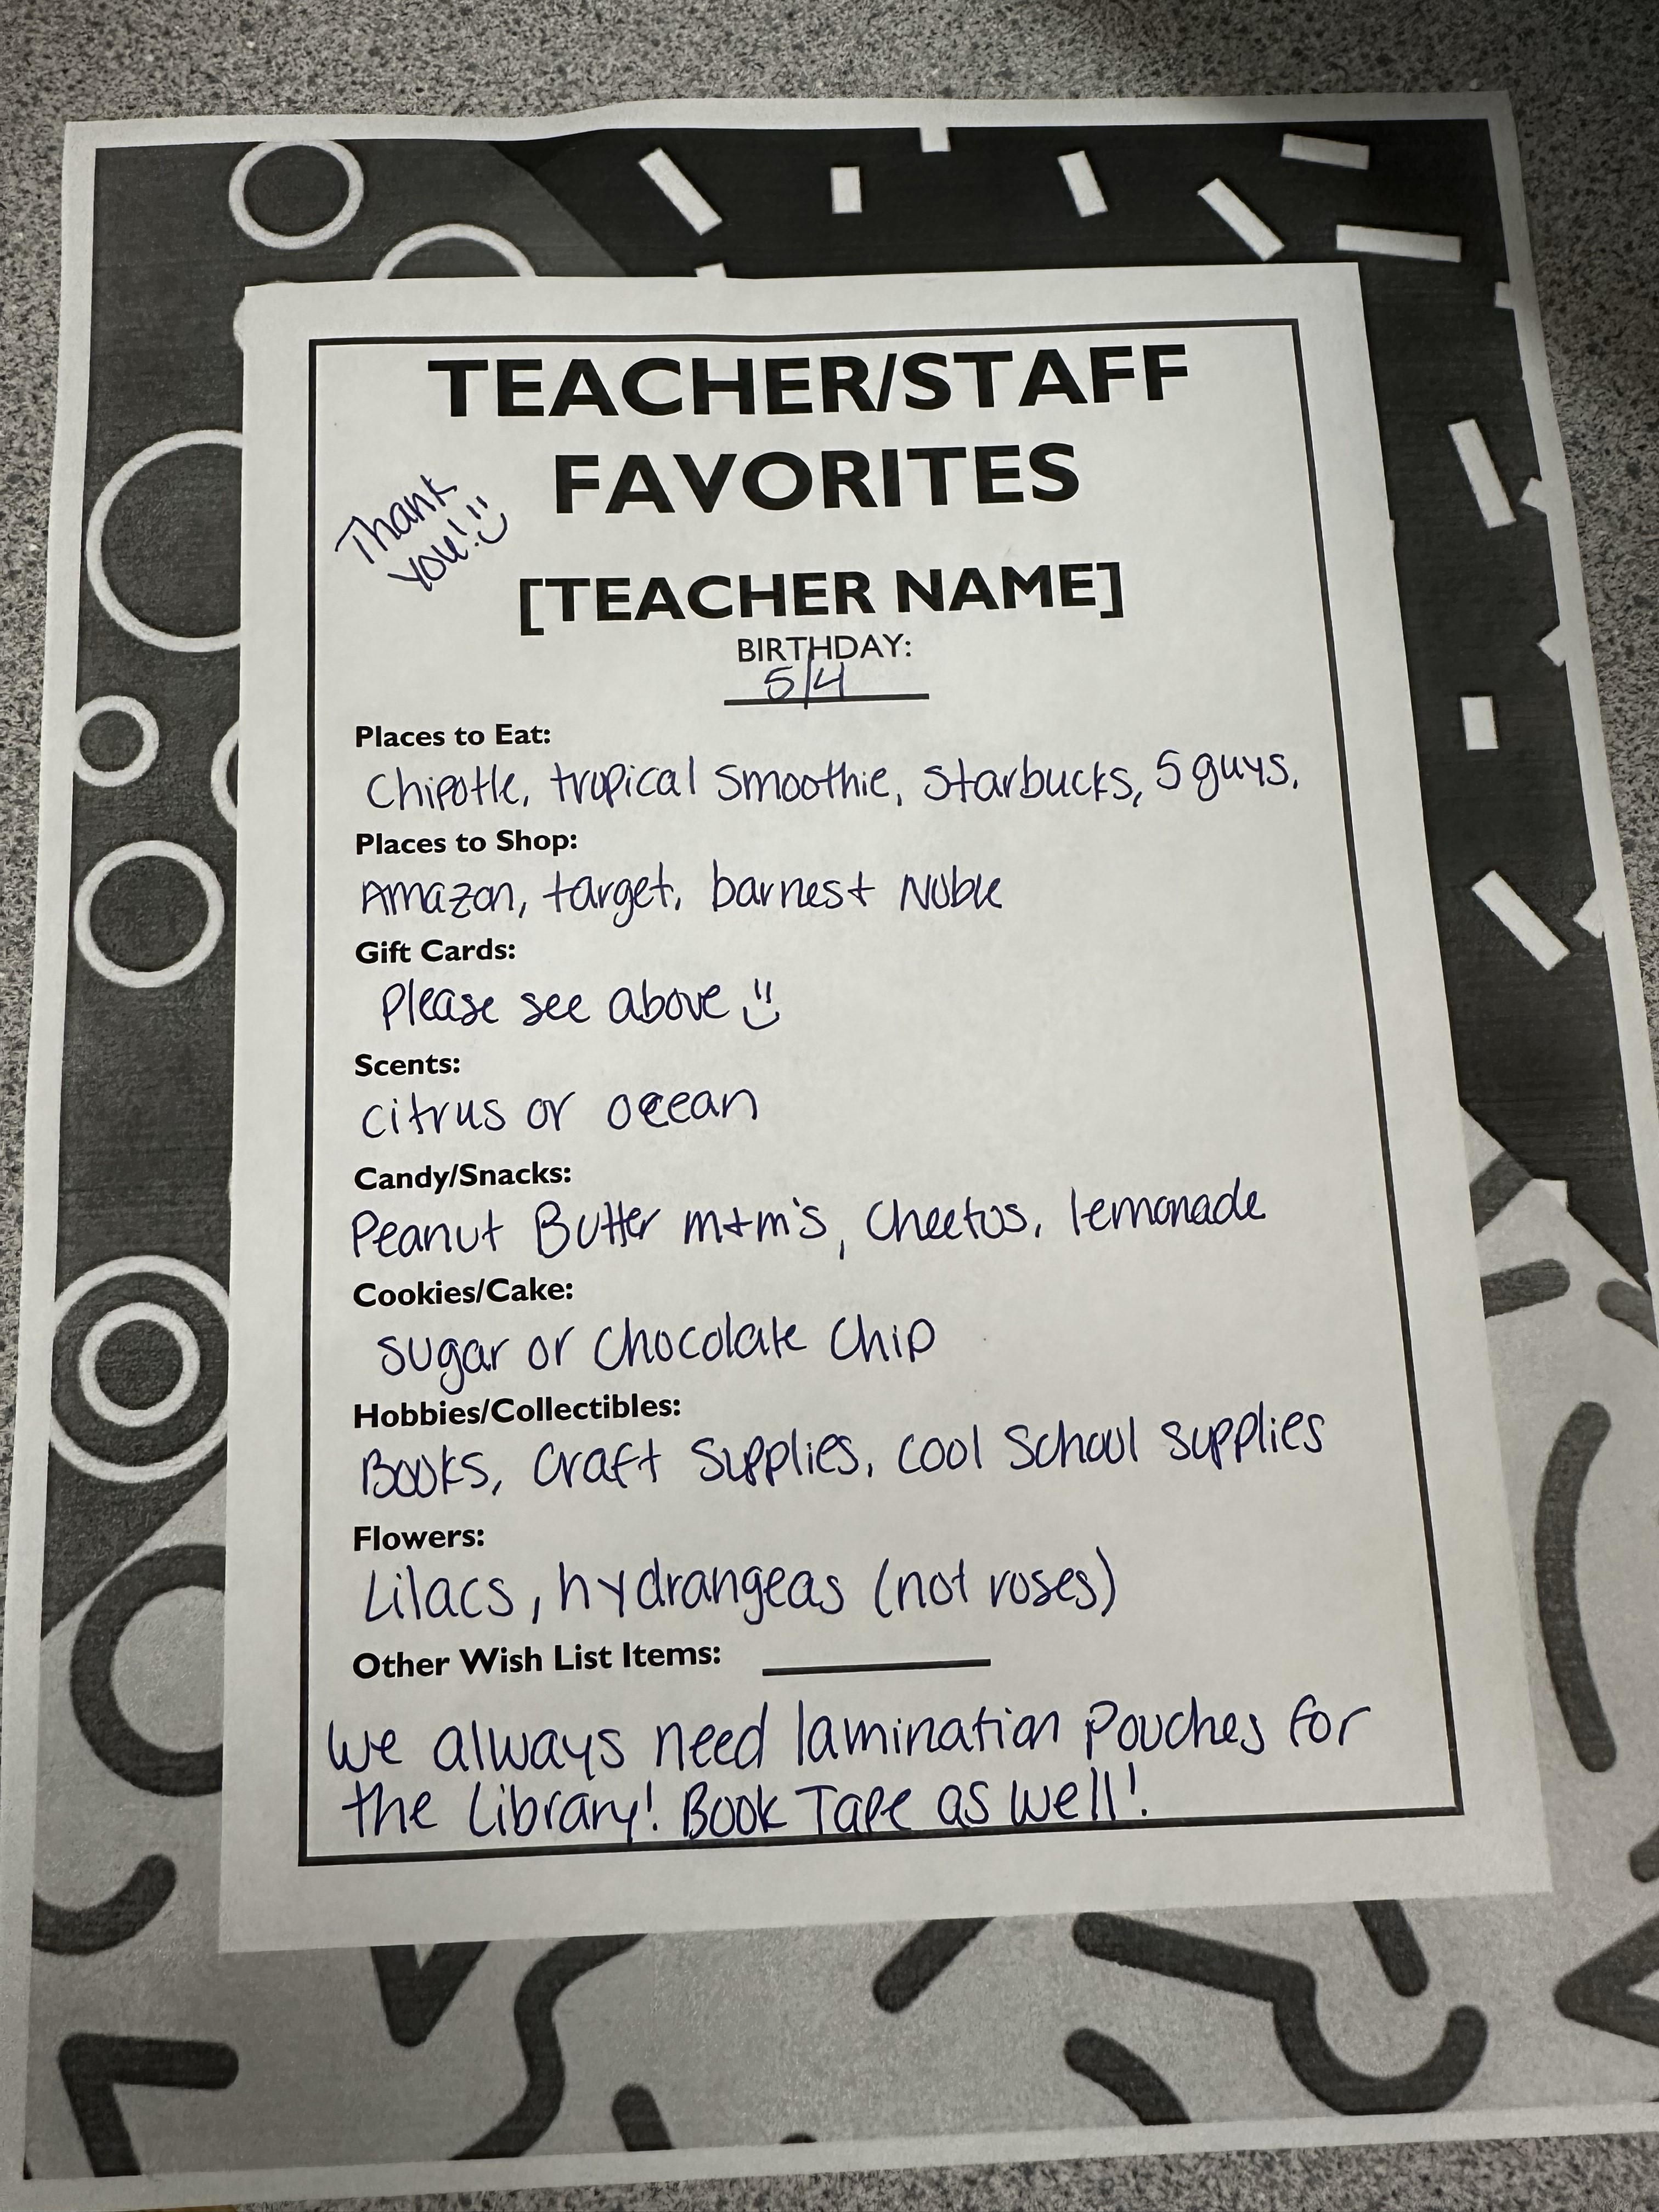 TEACHER/STAFF
FAVORITES
Thank
you!
[TEACHER NAME]
BIRTHDAY:
5/4
Places to Eat:
Chipotle, tropical smoothie, Starbucks, 5 guys.
Places to Shop:
Amazon, target, barnes + Noble
Gift Cards:
Please see above
Scents:
citrus or ocean
Candy/Snacks:
Peanut Butter m+m's, Cheetos, lemonade
Cookies/Cake:
sugar or Chocolate Chip
Hobbies/Collectibles:
Books, Craft Supplies, cool School supplies
Flowers:
Lilacs, hydrangeas (not roses)
Other Wish List Items:
We always need lamination Pouches for
the Library! Book Tape as well!